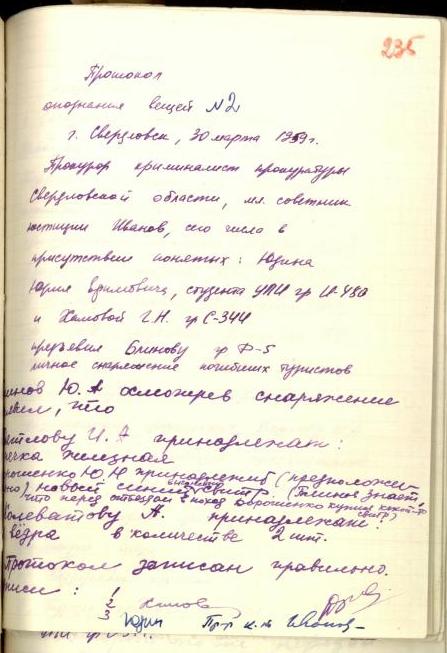 235
Протокол
опознания вещей №2
г. Свердловск, 30 марта 1959г.
Прокурор криминалист прокуратуры
Свердловской области, мл. советник
юстиции Иванов, сего числа в
присутствии понятых: Юдина
Юрия Ефимовича, студента УПИ гр И-480
и Хамовой Г.Н. гр С-344
предъявил Блинову гр Ф-5
личное снаряжение погибших туристов
инов Ю.А осмотрев снаряжение
что
ятлову И.А принадлежат:
печка железная
рошенко Ю Н принадлежит (предположи
но) новый синий свитр. (Блинов знает
что перед отъездом в поход Дорошенко купил какой-то
свитр)
Колеватову А. принадлежат:
вёдра в количестве 2 шт.
Протокол записан правильно.
писи: 1
2
3 Юдин Пр-р Иванов